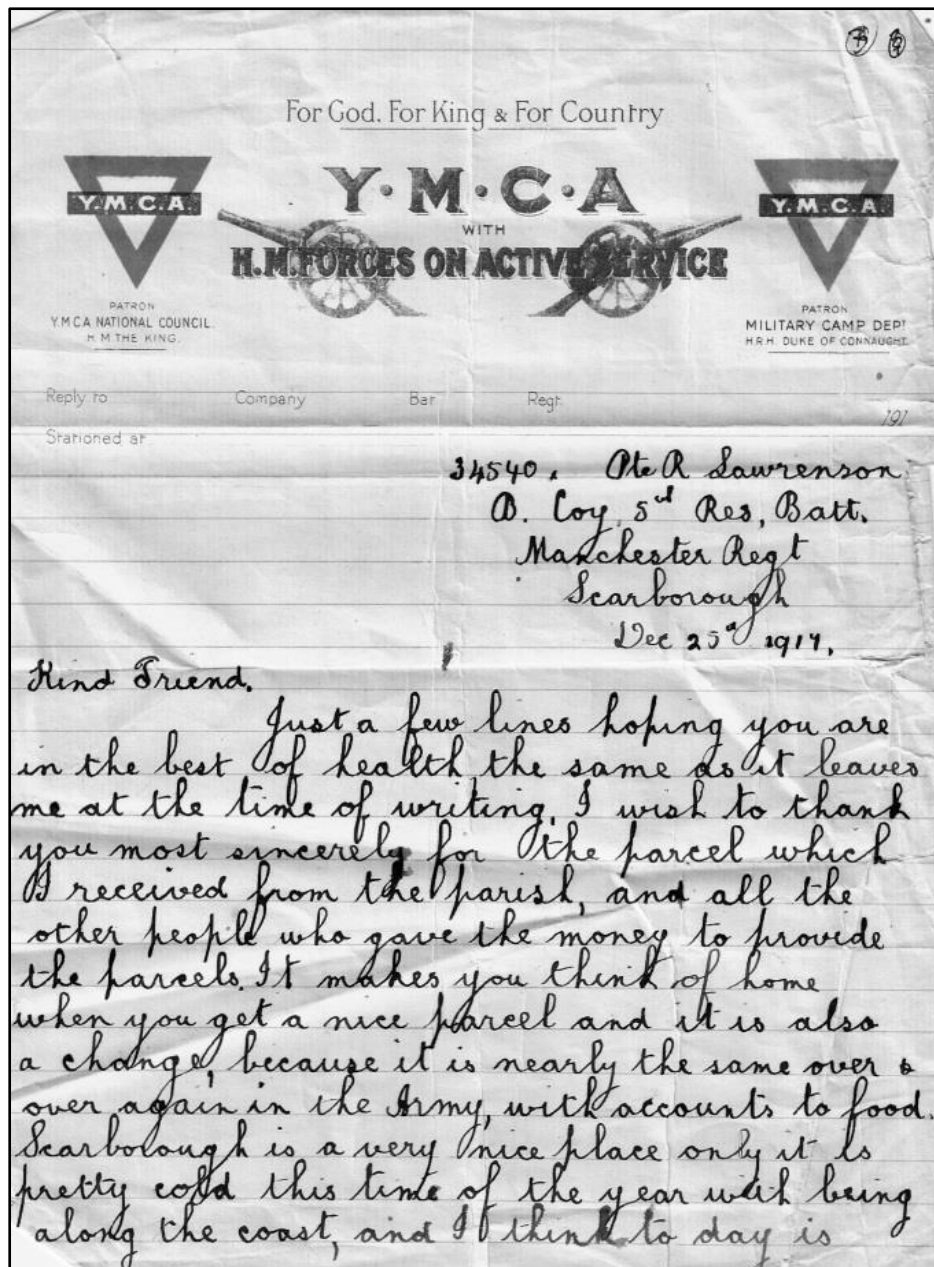 For God, For King & For Country
Y·M·C·A
WITH
H.M. FORCES ON ACTIVE SERVICE
Y.M.C.A.
PATRON
Y.M.C.A NATIONAL COUNCIL.
H.M. THE KING.
Y.M.C.A.
PATRON
MILITARY CAMP DEPT
H.R.H. DUKE OF CONNAUGHT.
Reply to Company Bat Regt.
191
Stationed at
34540. Pte R Lawrenson
Coy, 5th Res, Batt.
Manchester Regt
Scarborough
Dec 25th 1917.
Kind Friend.
Just a few lines hoping you are
in the best of health, the same as it leaves
me at the time of writing. I wish to thank
you most sincerely for the parcel which
I received from the parish, and all the
other people who gave the money to provide
the parcels. It makes you think of home
when you get a nice parcel and it is also
a change, because it is nearly the same over &
over again in the Army, with accounts to food.
Scarborough is a very nice place only it is
pretty cold this time of the year with being
along the coast, and I think to day is